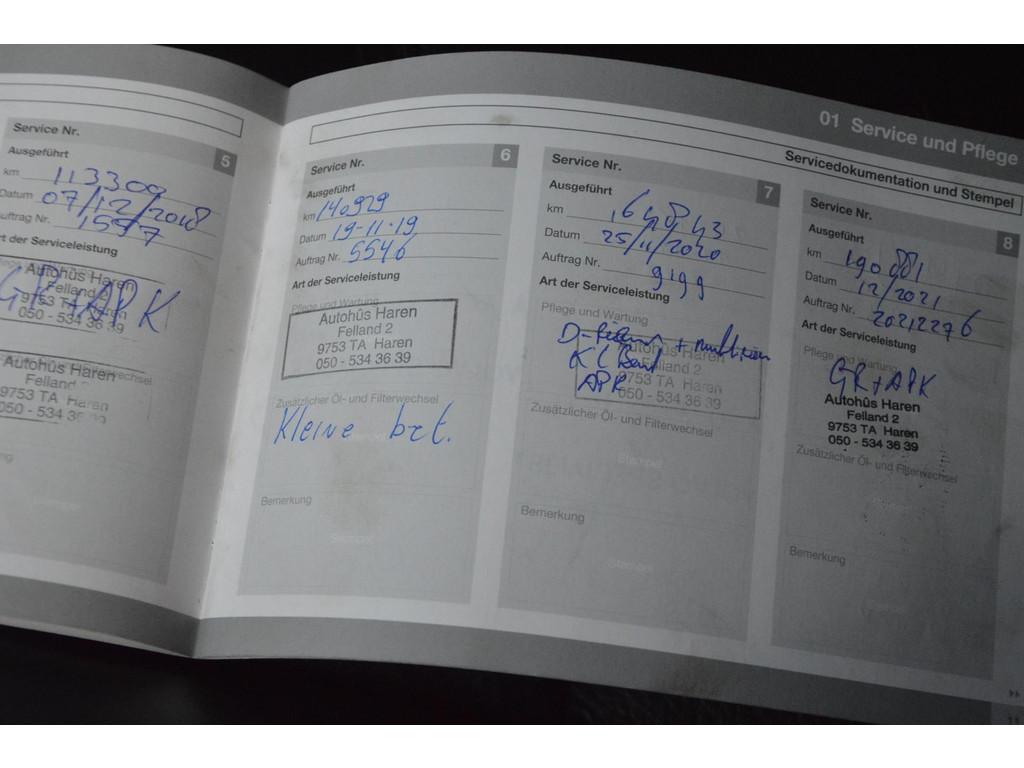 01 Service und Pflege
Servicedokumentation und Stempel
Service Nr. 5
Ausgeführt
km 113309
Datum 07/12/2018
Auftrag Nr. 1557
Art der Serviceleistung
GR+APK
Autohûs Haren
Felland 2
9753 TA Haren
050 - 534 36 39
Autohûs Haren
Felland
9753 TA Haren
050 - 534 36 39
Service Nr. 6
Ausgeführt
km 140929
Datum 19-11-19
Auftrag Nr. 5546
Art der Serviceleistung
Pflege und Wartung
Autohûs Haren
Felland 2
9753 TA Haren
050 - 534 36 39
Zusätzlicher Öl- und Filterwechsel
Kleine brt.
Bemerkung
Stempel
Service Nr. 7
Ausgeführt
km
Datum 25/11/2020
Auftrag Nr. 9199
Art der Serviceleistung
Pflege und Wartung
Autohûs Haren
Felland 2
9753 TA Haren
050 - 534 36 39
APK
Zusätzlicher Öl- und Filterwechsel
Stempel
Bemerkung
Stempel
Service Nr. 8
Ausgeführt
km 190881
Datum 12/2021
Auftrag Nr. 20212276
Art der Serviceleistung
Pflege und Wartung
GR+APK
Autohûs Haren
Felland 2
9753 TA Haren
050 - 534 36 39
Zusätzlicher Öl- und Filterwechsel
Bemerkung